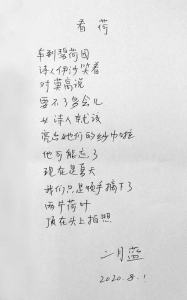 看荷
车到碧荷园
诗人伊沙笑着
对莫高说
要不了多会儿
女诗人就该
它们的纱巾啦
他可能忘了
现在是夏天
我们只是顺手摘下了
两片荷叶
顶在头上拍照
二月蓝
2020.8.1